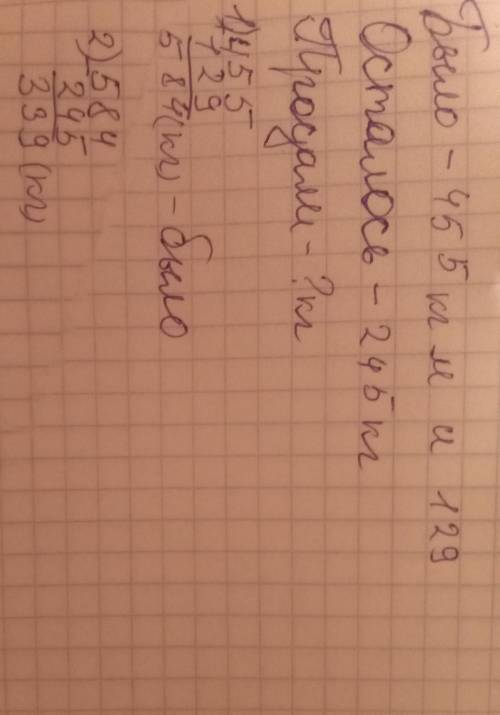 Было - 455 кг м и 129
Осталось - 245 кг
Продали - ? кг
1) 455
129
584 (кг) - было
2) 584
245
339 (кг)